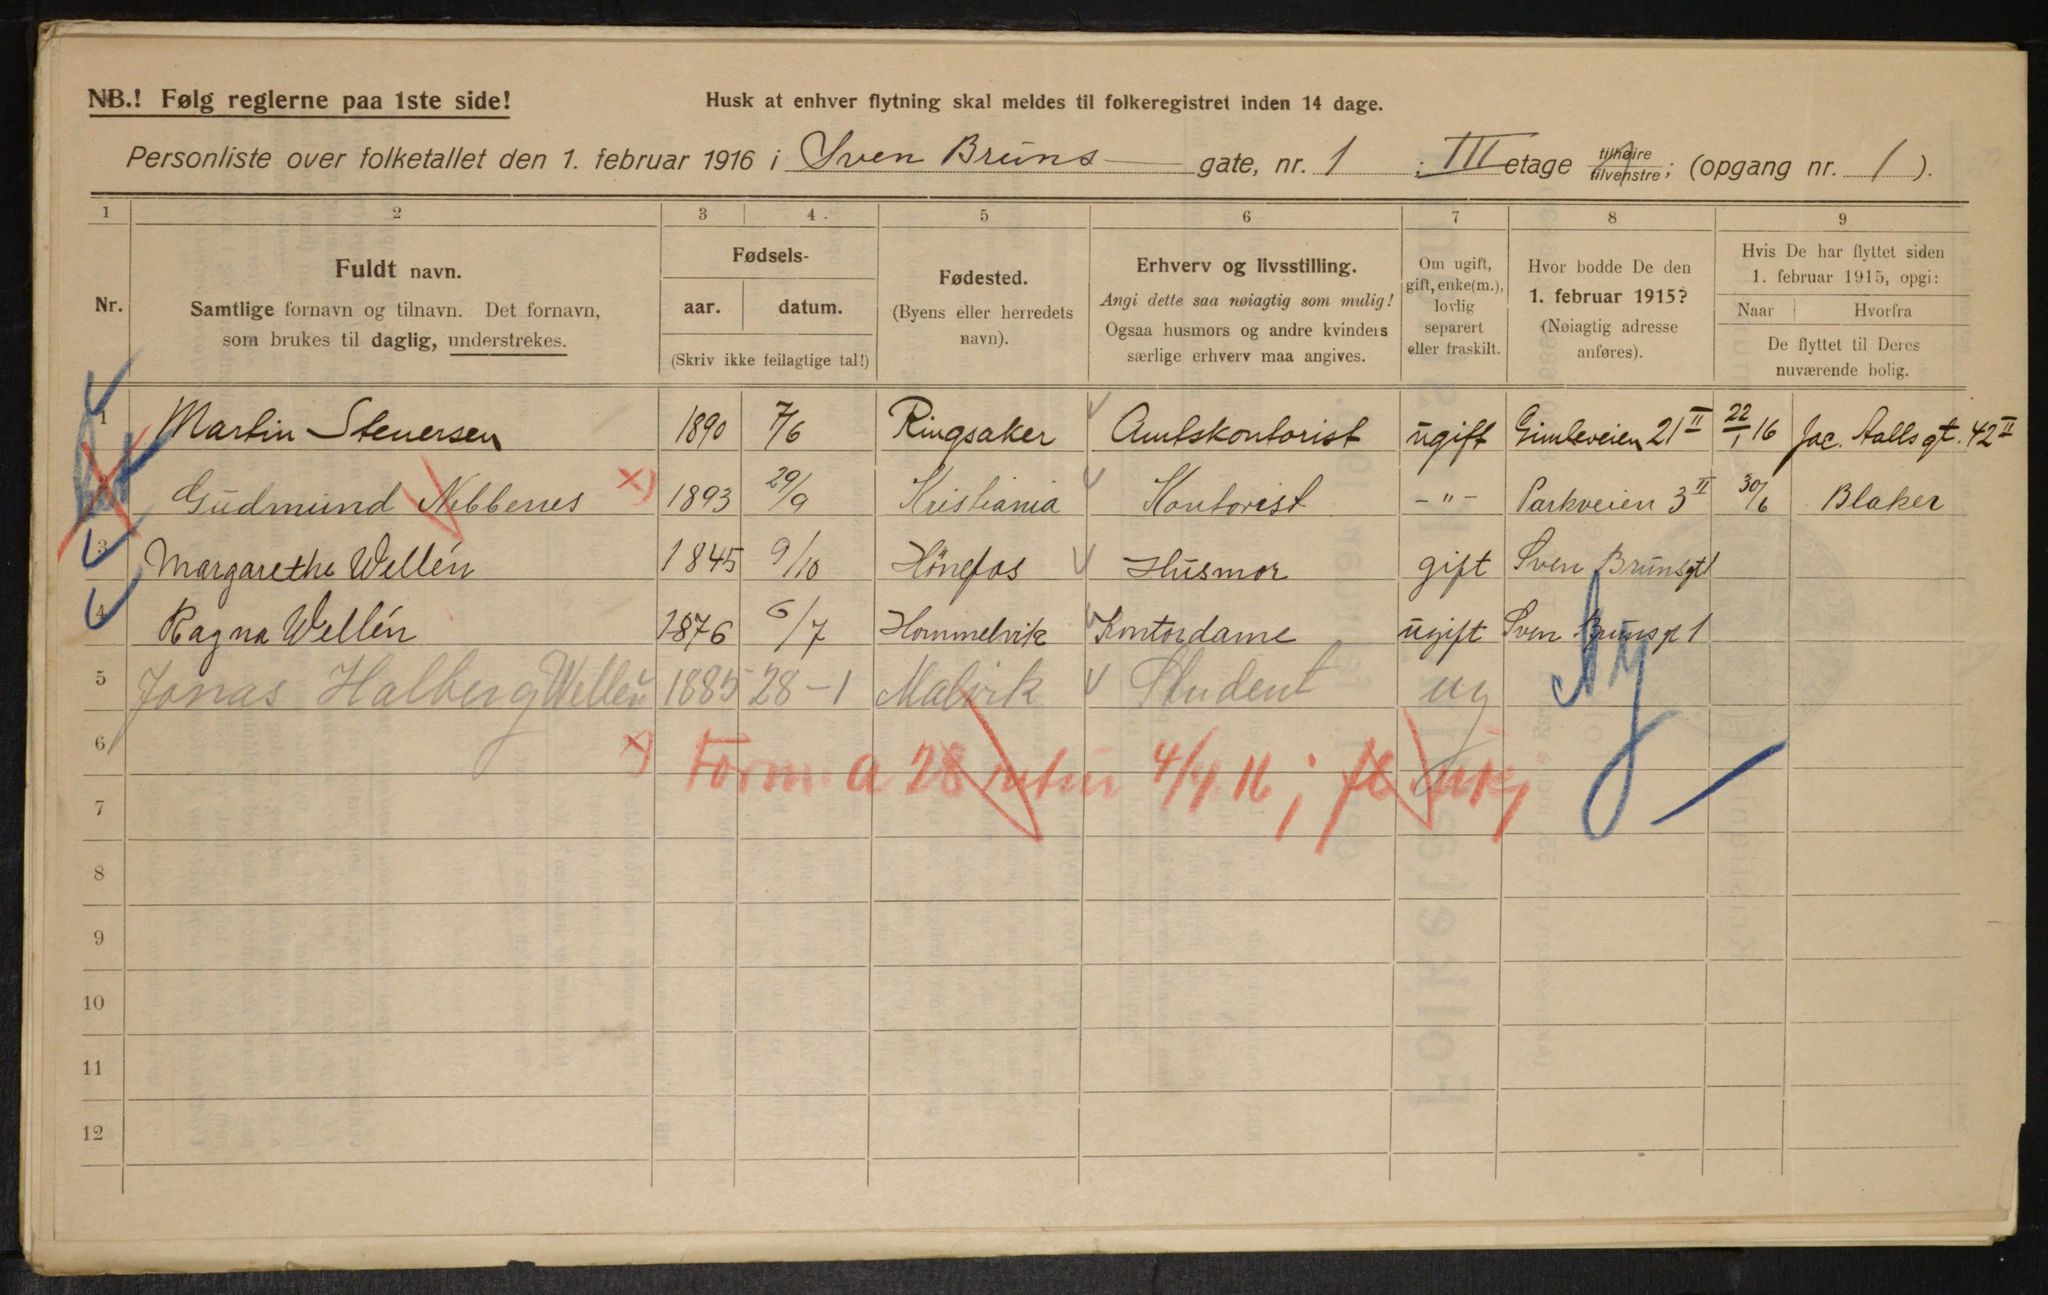 NB.! Følg reglerne paa 1ste side!
Husk at enhver flytning skal meldes til folkeregistret inden 14 dage.
Personliste over folketallet den 1. februar 1916 i Sven Bruns gate, nr. 1 ; III etage tilhøire tilvenstre; (opgang nr. 1 ).
1 2 3 4 5 6 7 8 9
Nr.
Fuldt navn.
Samtlige fornavn og tilnavn. Det fornavn,
som brukes til daglig, understrekes.
Fødsels-
aar. datum.
(Skriv ikke feilagtige tal!)
Fødested.
(Byens eller herredets
navn).
Erhverv og livsstilling.
Angi dette saa nøiagtig som mulig!
Ogsaa husmors og andre kvinders
særlige erhverv maa angives.
Om ugift,
gift, enke(m.),
lovlig
separert
eller fraskilt.
Hvor bodde De den
1. februar 1915?
(Nøiagtig adresse
anføres).
Hvis De har flyttet siden
1. februar 1915, opgi:
Naar Hvorfra
De flyttet til Deres
nuværende bolig.
1 Martin Stenersen 1890 7/6 Ringsaker Amtskontorist ugift Gimleveien 21 II 22/1 16 Jac. Aallsgt. 42 II
Gudmund Nibbenes x) 1893 29/9 Kristiania Kontorist -"- Parkveien 3 II 30/6 Blaker
3 Margarethe Wellén 1845 9/10 Hönefos Husmor gift Sven Brunsgt 1
4 Ragna Wellén 1876 6/7 Hommelvik Kontordame ugift Sven Brunsgt 1
5 Jonas Halberg Wellén 1885 28-1 Malvik Student ug Ny
6 x) Form. a 28 retur 4/4 16;
7
8
9
10
11
12